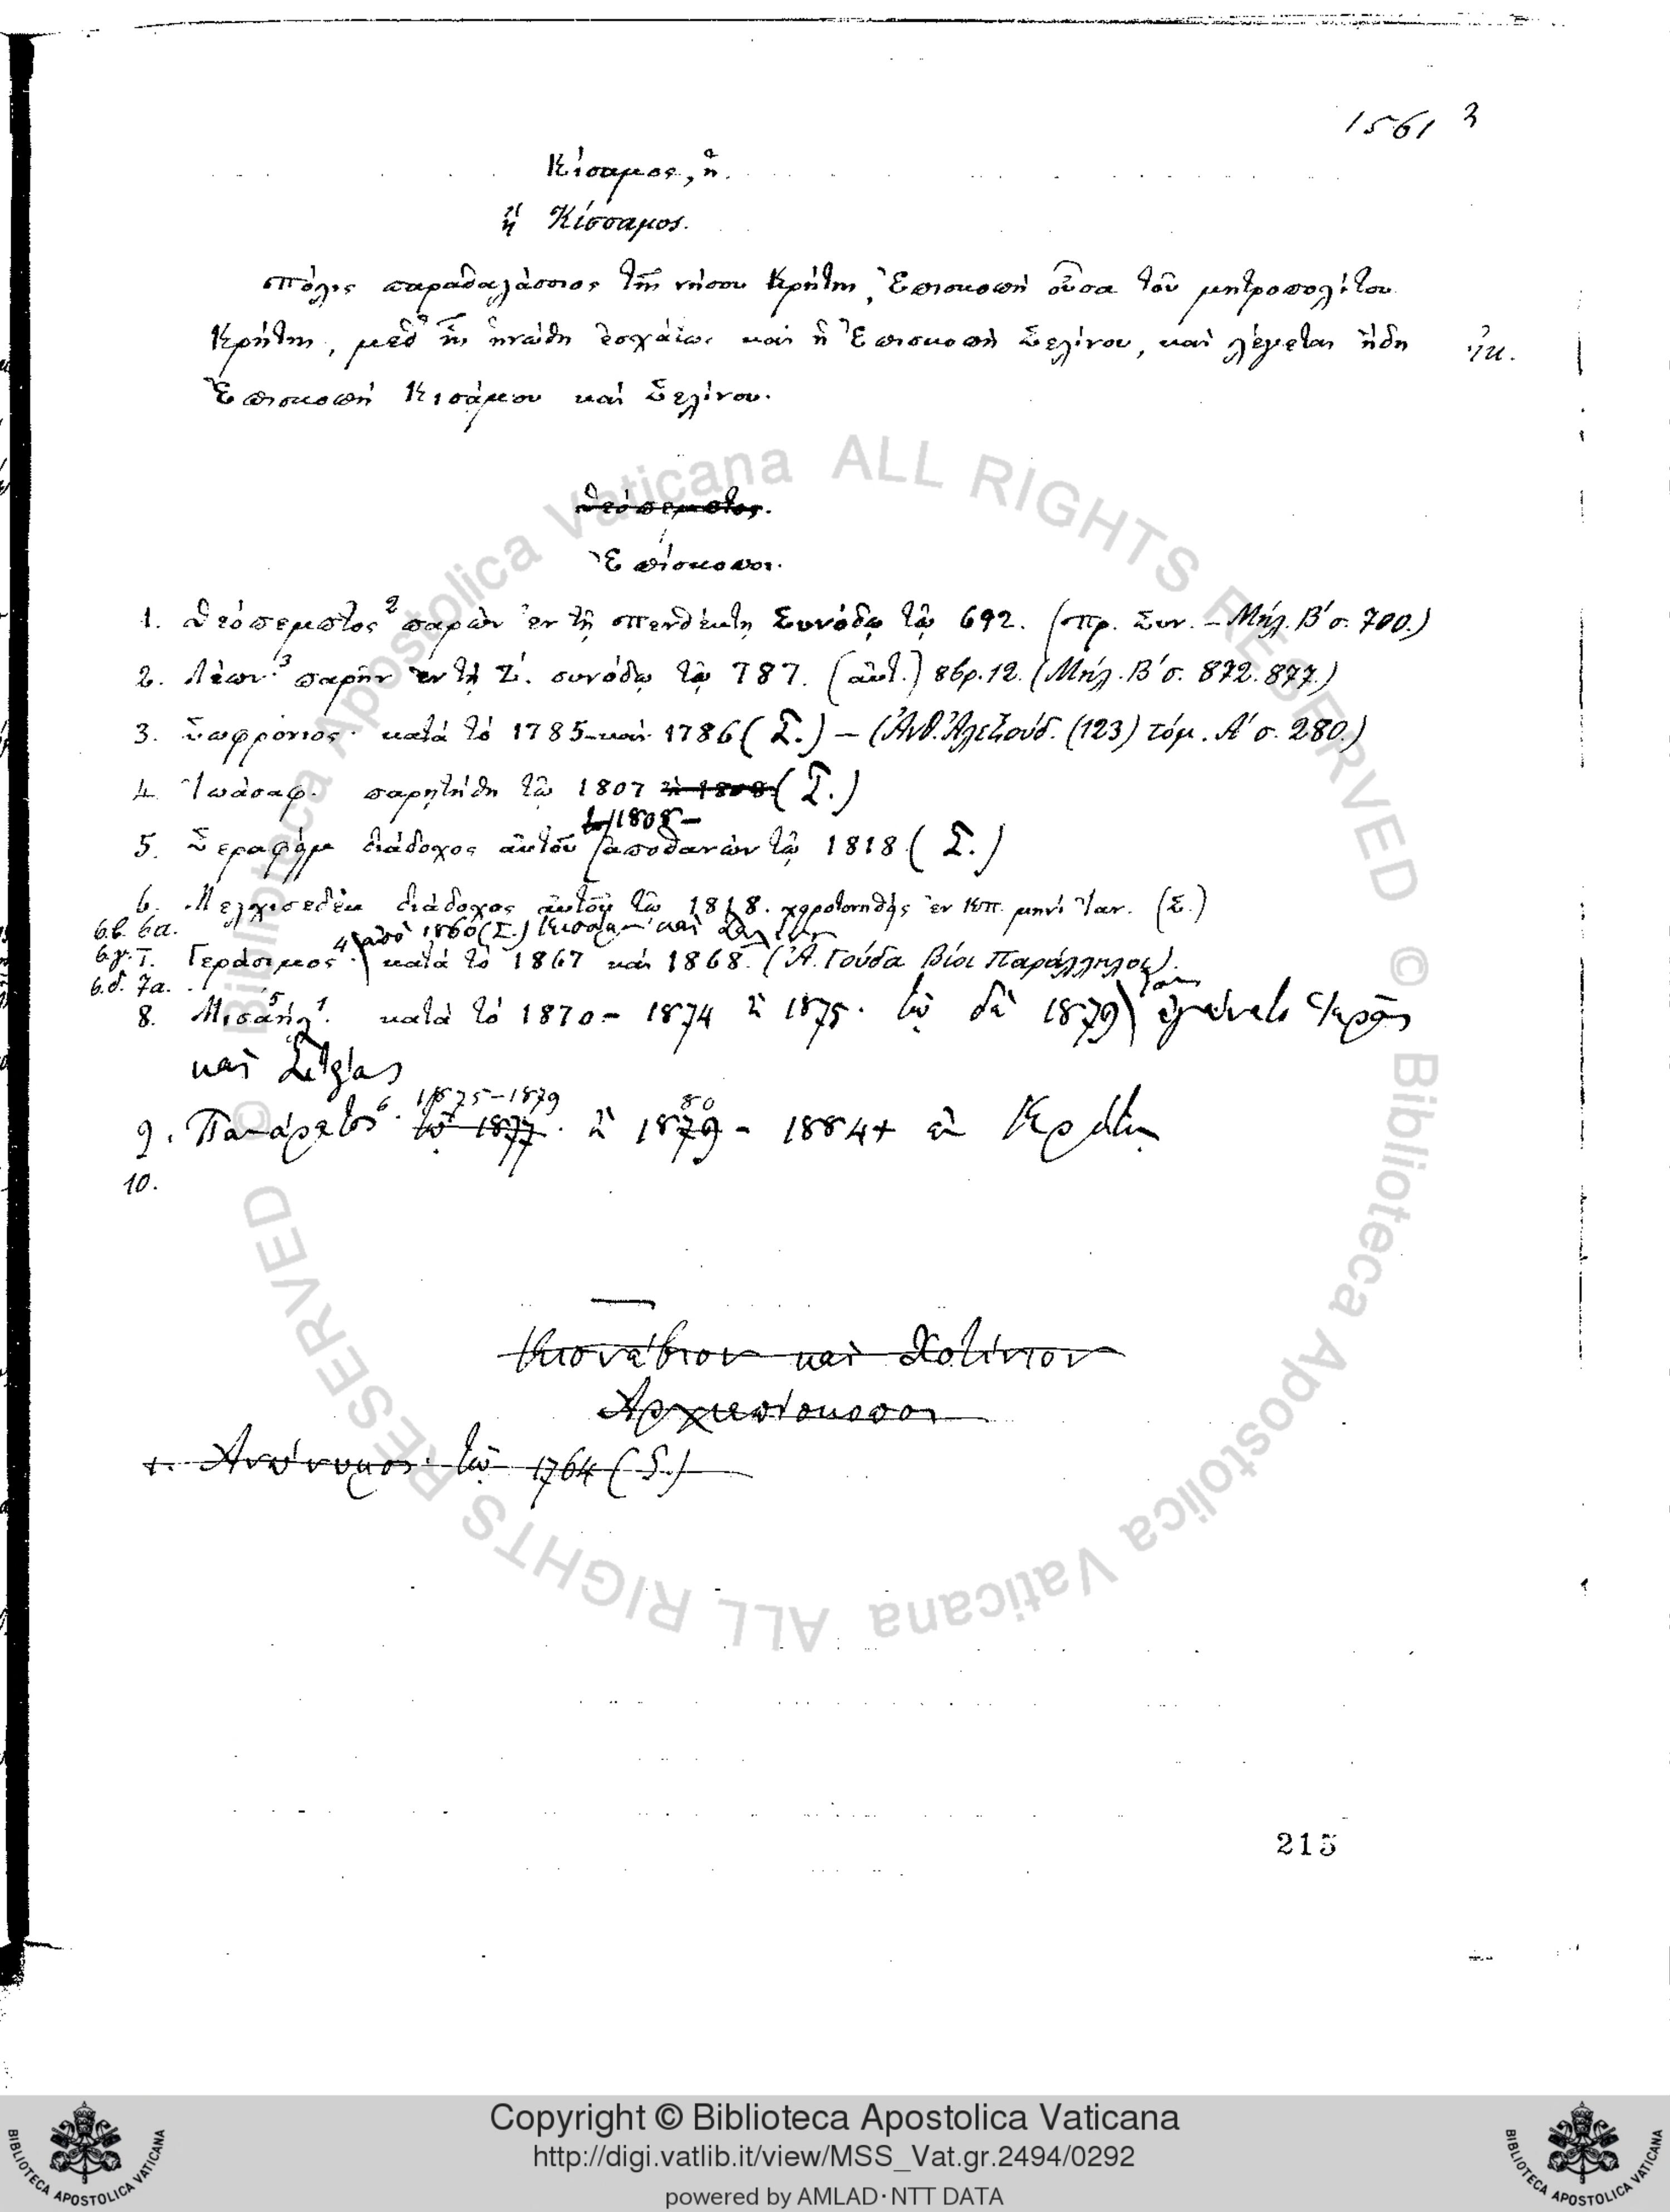 1561 3
Κίσαμος, ἡ.
ἢ Κίσσαμος.
Πόλις παραθαλάσσιος τῆς νήσου Κρήτης, Ἐπισκοπὴ οὖσα τοῦ μητροπολίτου
Κρήτης, μεθ' ἧς ἡνώθη ἐσχάτως καὶ ἡ Ἐπισκοπὴ Σελίνου, καὶ λέγεται ἤδη
Ἐπισκοπὴ Κισάμου καὶ Σελίνου.
Θεόπεμπτος.
Ἐπίσκοποι.
1. Θεόπεμπτος 2 παρὼν ἐν τῇ πενθέκτῃ Συνόδῳ τῷ 692. (Πρ. Συν. – Μήλ. Β' σ. 700.)
2. Λέων 3 παρῆν ἐν τῇ Ζ'. συνόδῳ τῷ 787. (αὐτ.) (Μήλ. Β' σ. 872. 877.)
3. Σωφρόνιος· κατὰ τὸ 1785 – καὶ 1786 (Σ.) – (Ἀνθ. Ἀλεξούδ. (123) τόμ. Α' σ. 280.)
4. Ἰωάσαφ. παρῃτήθη τῷ 1807 ἢ 1808 (Σ.)
τῷ 1808 –
5. Σεραφὶμ διάδοχος αὐτοῦ ἀποθανὼν τῷ 1818 (Σ.)
6. Μελχισεδὲκ διάδοχος αὐτοῦ τῷ 1818. χειροτονηθεὶς ἐν Κπ. μηνὶ Ἰαν. (Σ.)
6.β. 6α. ἀπὸ 1860 (Σ.) Κισάμου καὶ Σελίνου
6.γ. 7. Γεράσιμος 4. κατὰ τὸ 1867 καὶ 1868. (Ἀ. Γούδα Βίοι Παράλληλοι).
6.δ. 7α.
8. Μισαὴλ 5. κατὰ τὸ 1870 – 1874 ἢ 1875. τῷ δὲ 1879 ἐγένετο Ἱερᾶς
καὶ Σητείας
1875–1879 80
9. Πανάρετος 6. τῷ 1877. ἢ 1879 – 1884+ ἐν Κρήτῃ
10.
καὶ
Ἀρχιεπίσκοποι
1. Ἀνώνυμος. τῷ 1764 (Σ.)
215
© Biblioteca Apostolica Vaticana ALL RIGHTS RESERVED © Biblioteca Apostolica Vaticana ALL RIGHTS RESERVED
Copyright © Biblioteca Apostolica Vaticana
http://digi.vatlib.it/view/MSS_Vat.gr.2494/0292
powered by AMLAD·NTT DATA
BIBLIOTECA APOSTOLICA VATICANA
BIBLIOTECA APOSTOLICA VATICANA